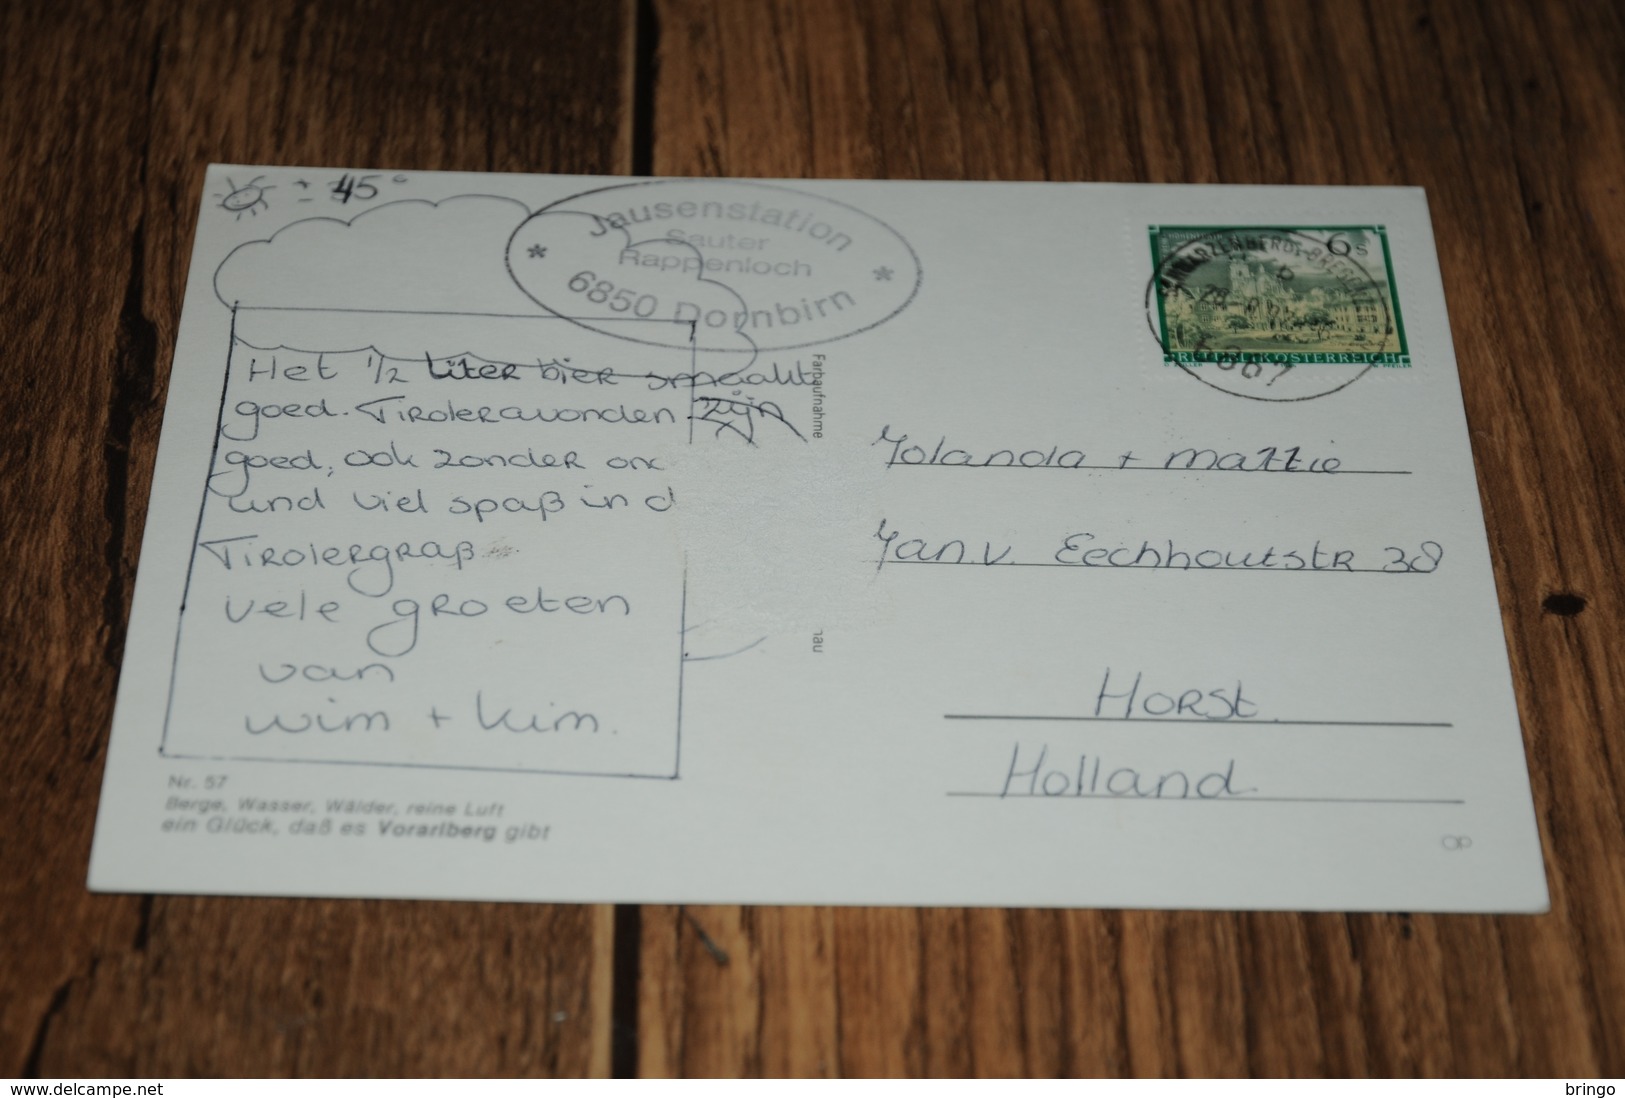 = 45°
Jausenstation
Sauter
Rappenloch
6850 Dornbirn
6 S
REPUBLIK ÖSTERREICH
6867
Het 1/2 liter bier smaakt
goed. Tiroleravonden zijn
goed, ook zonder
und viel spaß in
Tirolergraß
vele groeten
van
wim + kim.
Farbaufnahme
Yolanda + mattie
Jan. v. Eechhoutstr 38
Horst
Holland
Nr. 57
Berge, Wasser, Wälder, reine Luft
ein Glück, daß es Vorarlberg gibt
OP
www.delcampe.net
bringo